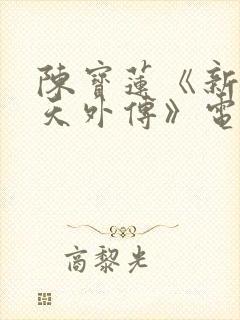 陳寶蓮《新
天外傳》電
高黎光